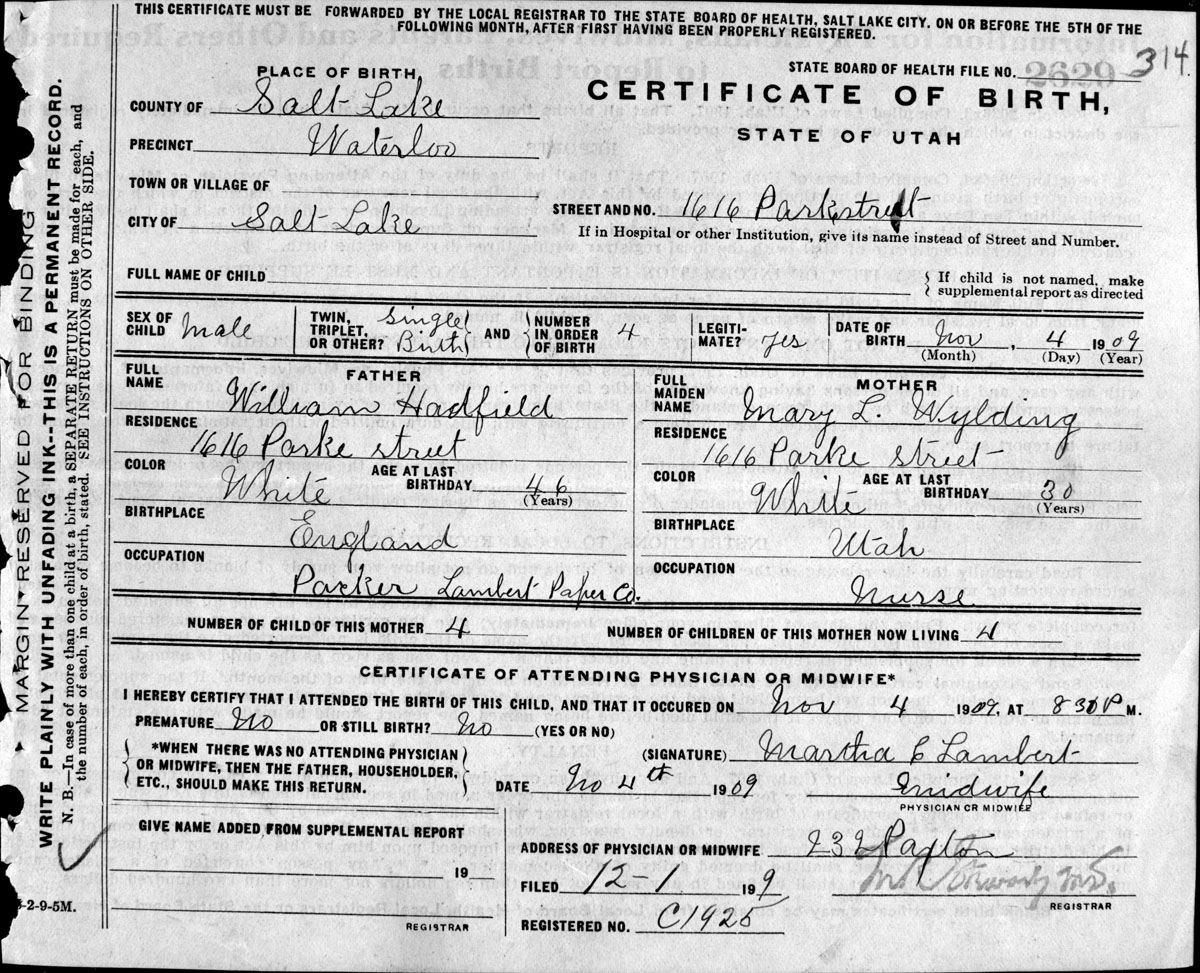 THIS CERTIFICATE MUST BE FORWARDED BY THE LOCAL REGISTRAR TO THE STATE BOARD OF HEALTH, SALT LAKE CITY, ON OR BEFORE THE 5TH OF THE
FOLLOWING MONTH, AFTER FIRST HAVING BEEN PROPERLY REGISTERED.
STATE BOARD OF HEALTH FILE NO. 314.
PLACE OF BIRTH,
CERTIFICATE OF BIRTH,
STATE OF UTAH
COUNTY OF Salt Lake
PRECINCT Waterloo
TOWN OR VILLAGE OF
CITY OF Salt Lake
STREET AND NO. 1616 Park street
If in Hospital or other Institution, give its name instead of Street and Number.
FULL NAME OF CHILD
{ If child is not named, make
supplemental report as directed
SEX OF CHILD Male
TWIN, TRIPLET, OR OTHER? Single Birth } AND { NUMBER IN ORDER OF BIRTH 4
LEGITIMATE? Yes
DATE OF BIRTH Nov, 4 1909
(Month) (Day) (Year)
FATHER
FULL NAME William Hadfield
RESIDENCE
1616 Parke street
COLOR White AGE AT LAST BIRTHDAY 46
(Years)
BIRTHPLACE England
OCCUPATION
Packer Lambert Paper Co.
MOTHER
FULL MAIDEN NAME Mary L. Wylding
RESIDENCE
1616 Parke street
COLOR White AGE AT LAST BIRTHDAY 30
(Years)
BIRTHPLACE
Utah
OCCUPATION
Nurse
NUMBER OF CHILD OF THIS MOTHER 4 NUMBER OF CHILDREN OF THIS MOTHER NOW LIVING 4
CERTIFICATE OF ATTENDING PHYSICIAN OR MIDWIFE*
I HEREBY CERTIFY THAT I ATTENDED THE BIRTH OF THIS CHILD, AND THAT IT OCCURED ON Nov 4 1909. AT 8 30 P M.
PREMATURE No OR STILL BIRTH? No (YES OR NO)
*WHEN THERE WAS NO ATTENDING PHYSICIAN
OR MIDWIFE, THEN THE FATHER, HOUSEHOLDER,
ETC., SHOULD MAKE THIS RETURN.
(SIGNATURE) Martha E Lambert
DATE No 4th 1909 Midwife
PHYSICIAN OR MIDWIFE
GIVE NAME ADDED FROM SUPPLEMENTAL REPORT
19
REGISTRAR
ADDRESS OF PHYSICIAN OR MIDWIFE 232 Paxton
FILED 12-1 199
REGISTRAR
REGISTERED NO. C1925
2-9-5M.
MARGIN RESERVED FOR BINDING
WRITE PLAINLY WITH UNFADING INK--THIS IS A PERMANENT RECORD.
N. B.—In case of more than one child at a birth, a SEPARATE RETURN must be made for each, and
the number of each, in order of birth, stated. SEE INSTRUCTIONS ON OTHER SIDE.